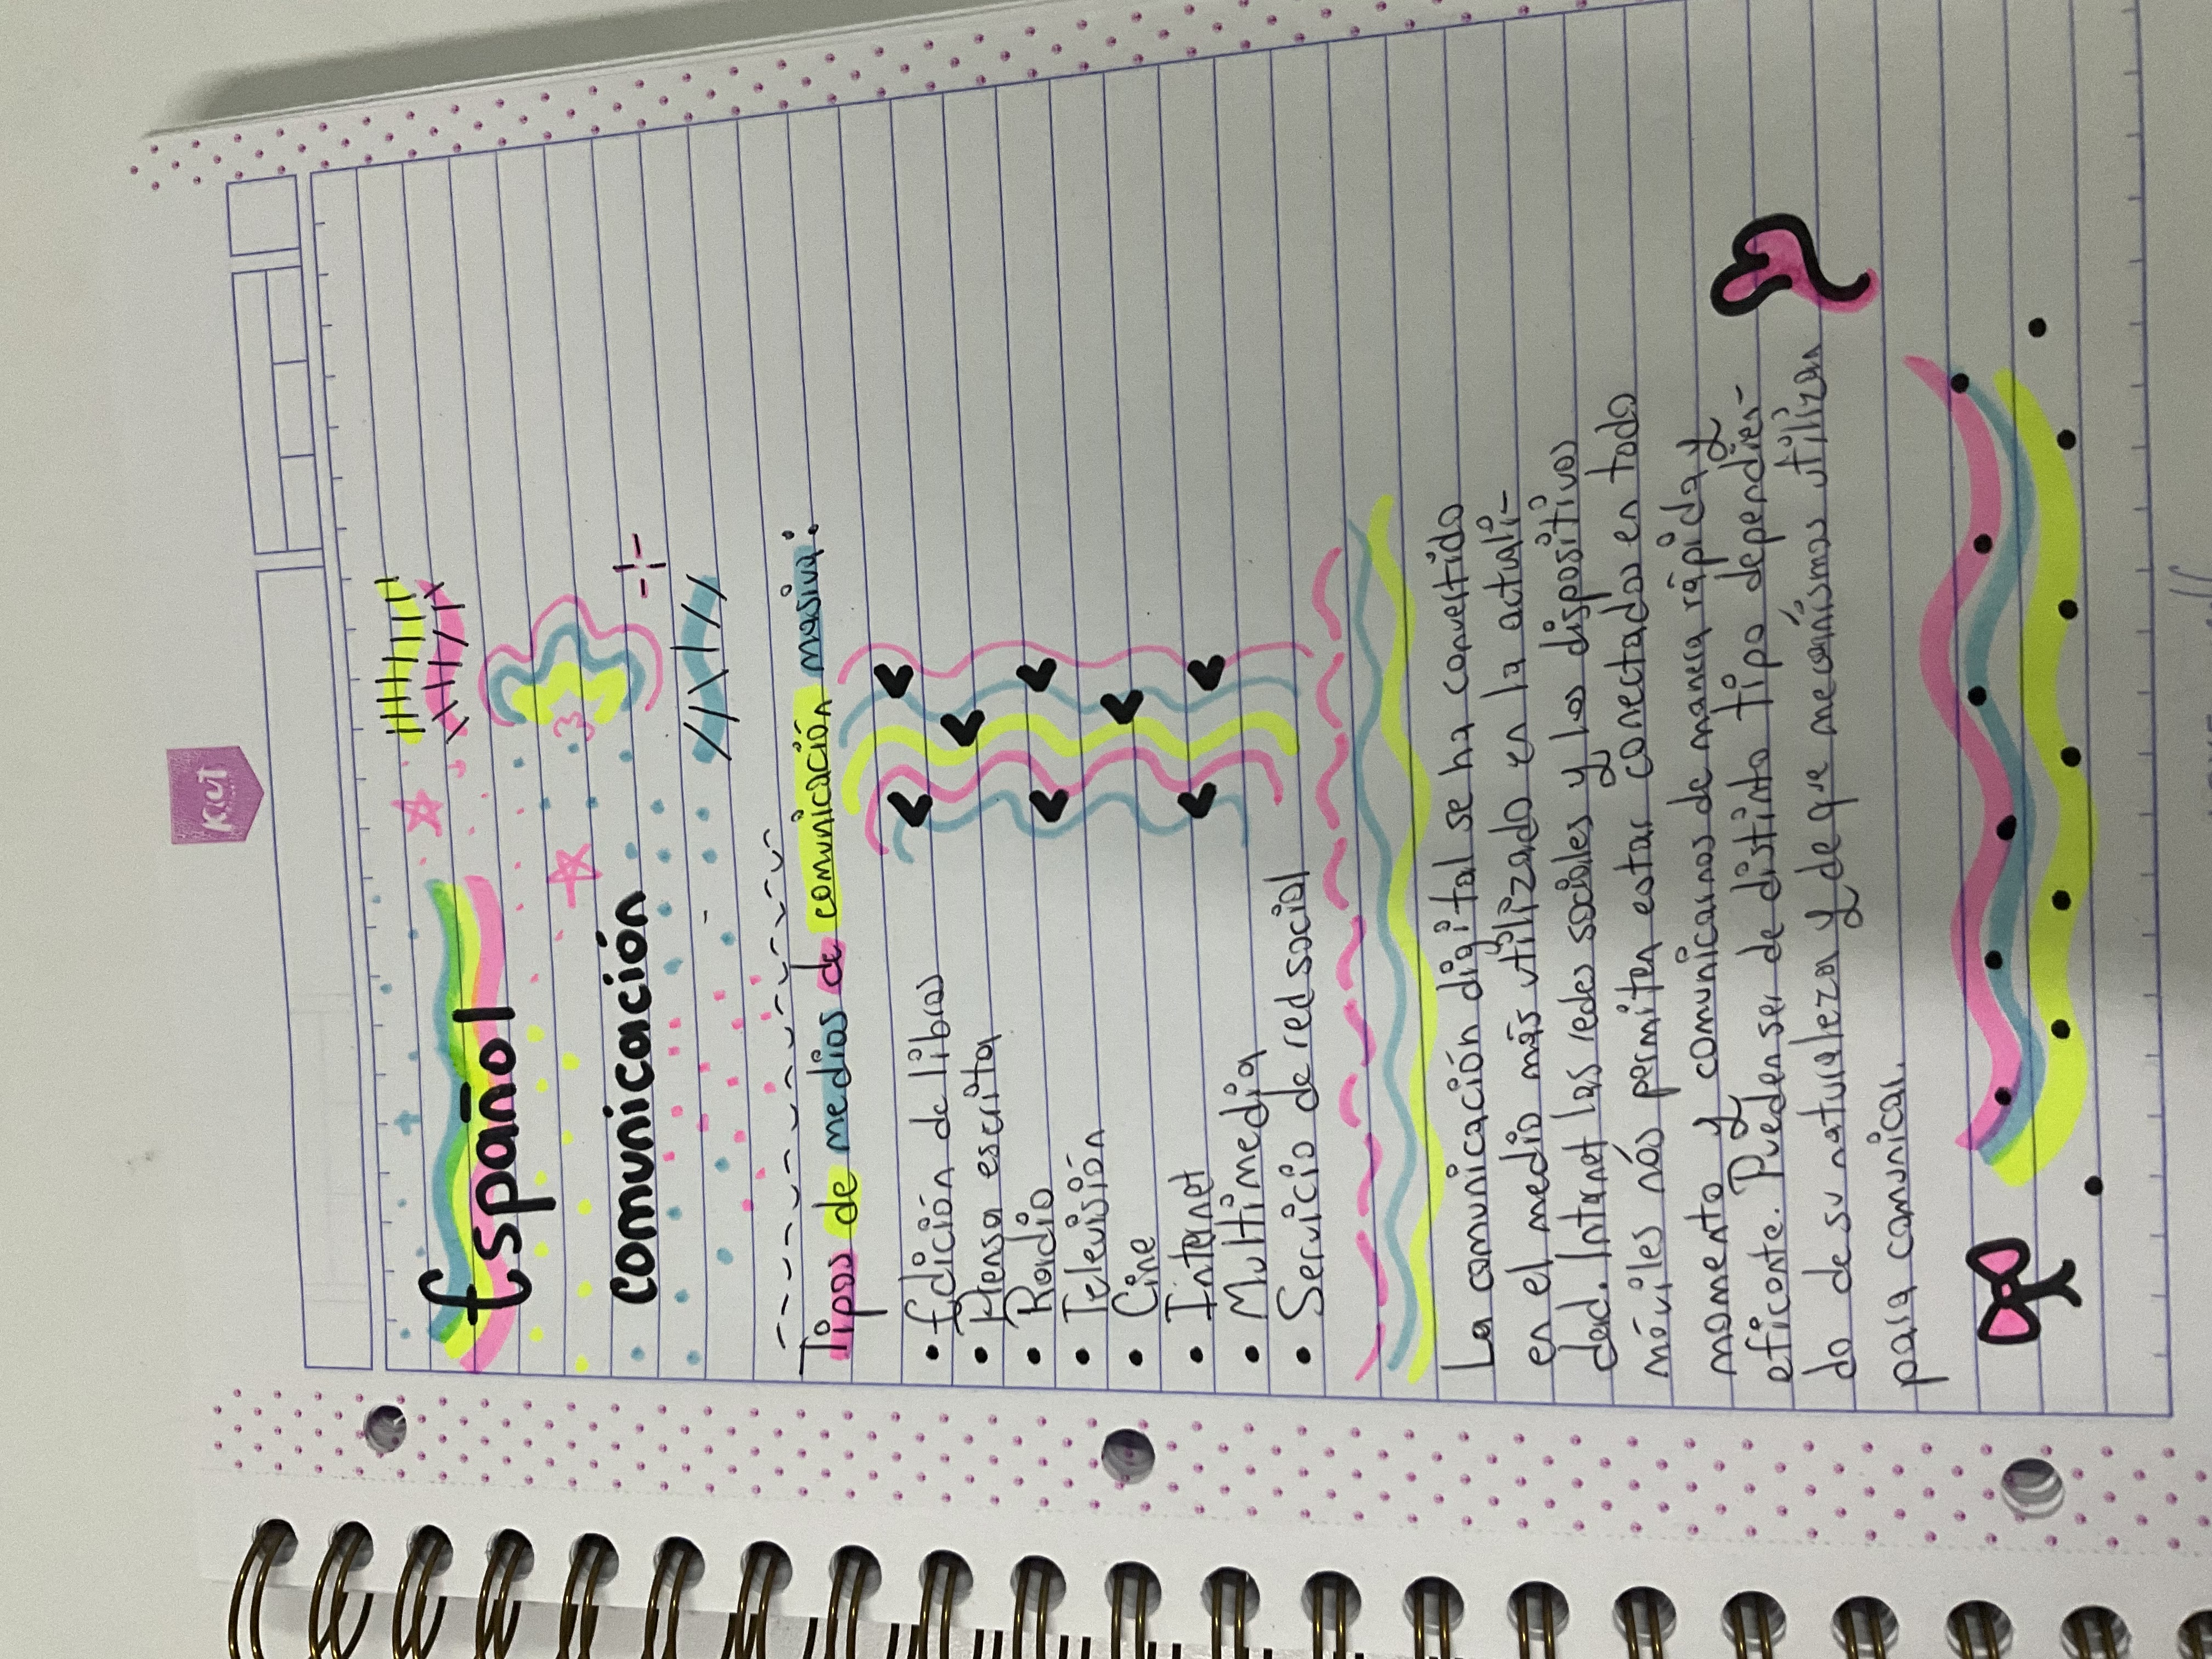 Kiut
Español
Comunicación
Tipos de medios de comunicación masiva:
• Edición de libros
• Prensa escrita
• Radio
• Televisión
• Cine
• Internet
• Multimedia
• Servicio de red social
La comunicación digital se ha convertido
en el medio más utilizado en la actuali-
dad. Internet las redes sociales y los dispositivos
móviles nós permiten estar conectados en todo
momento y comunicarnos de manera rápida y
eficente. Pueden ser de distinto tipo dependien-
do de su naturaleza y de que mecanísmos utilizan
para comunicar.